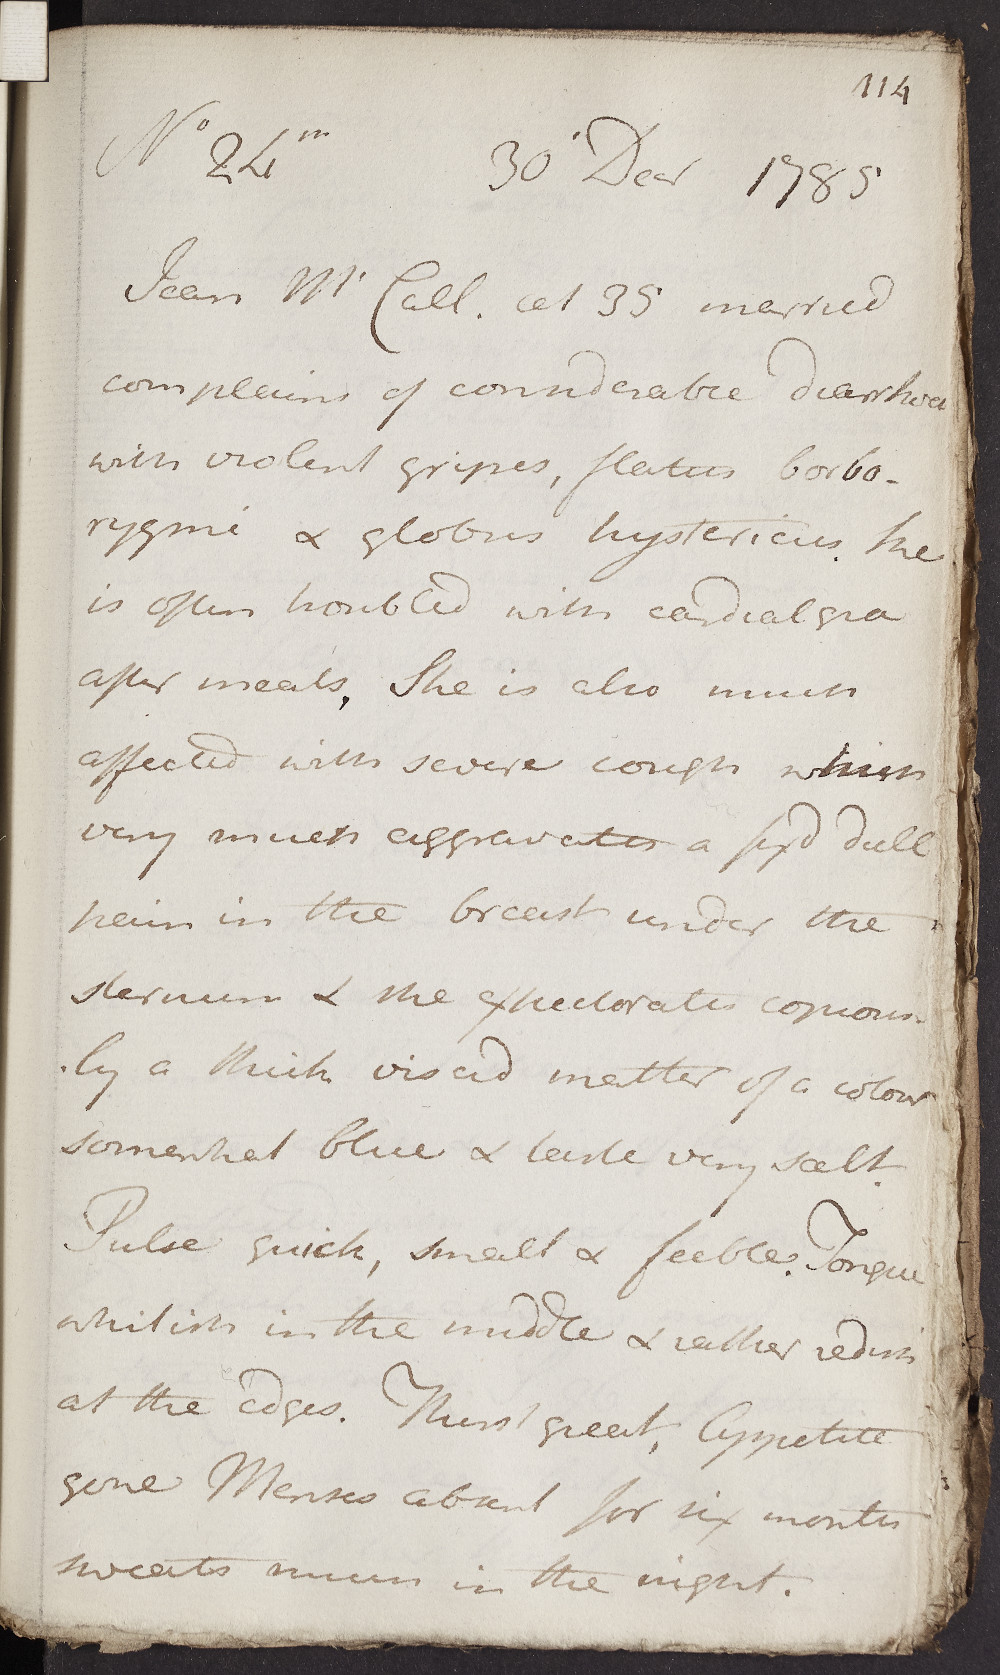 114
No 24m 30 Decr 1785
Jean Mc Call. aet 35 married
complains of considerable diarrhoea
with violent gripes, flatus borbo-
rygmi & globus hystericus. She
is often troubled with cardialgia
after meals, She is also much
affected with severe cough which
very much aggravates a fix'd dull
pain in the breast under the
sternum & she expectorates copious-
-ly a thick viscid matter of a colour
somewhat blue & taste very salt.
Pulse quick, small & feeble. Tongue
whitish in the middle & rather redish
at the edges. Thirst great, Appetite
gone Menses absent for six months
sweats much in the night.